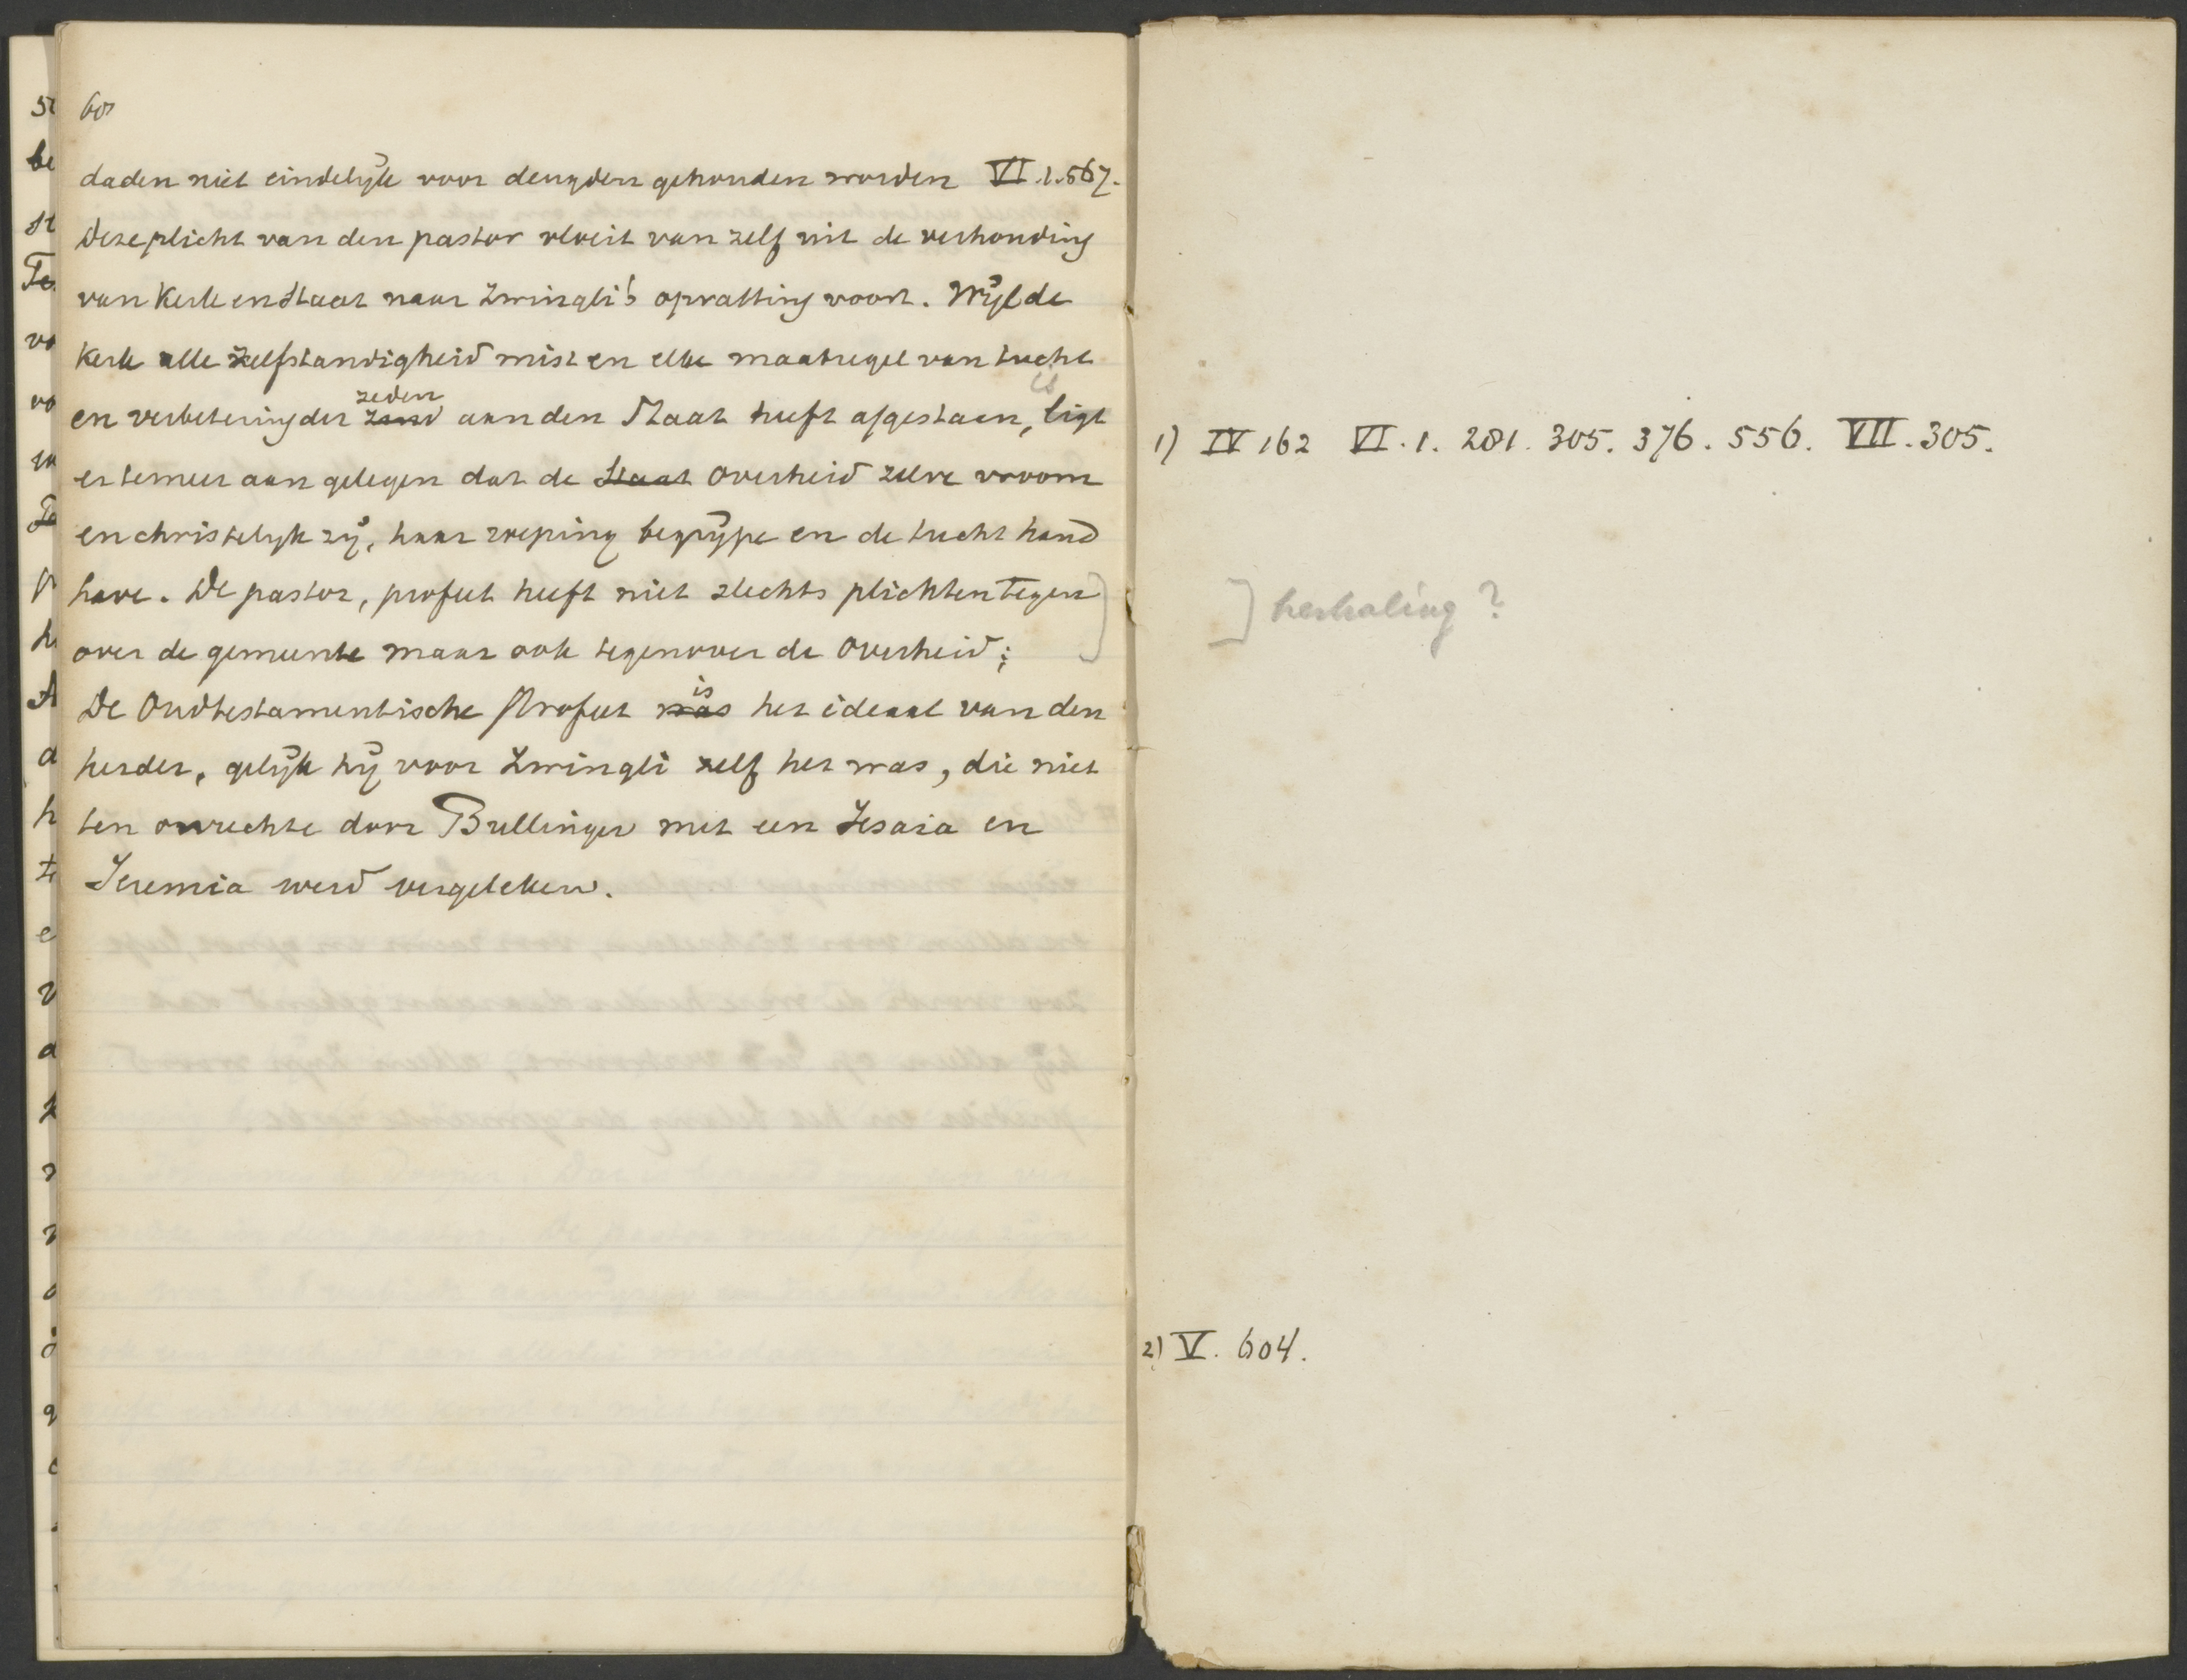 60
daden niet eindelijk voor deugden gehouden worden VI.1.567.
Deze plicht van den pastor vloeit van zelf uit de verhouding
van Kerk en Staat naar Zwingli's opvatting voort. Wijl de
Kerk alle zelfstandigheid mist en elke maatregel van tucht
en verbetering der zeden aan den Staat heeft afgestaan, ligt
er temeer aan gelegen dat de Staat overheid zelve vroom
en christelijk zij, haar roeping begrijpe en de tucht hand
have. De pastor, profeet heeft niet slechts plichten tegen
over de gemeente maar ook tegenover de Overheid;
De Oudtestamentische Profeet was is het ideaal van den
herder, gelijk hij voor Zwingli zelf het was, die niet
ten onrechte door Bullinger met een Jesaia en
Jeremia werd vergeleken.
1) IV 162 VI.1. 281. 305. 376. 556. VII. 305.
] herhaling?
2) V. 604.